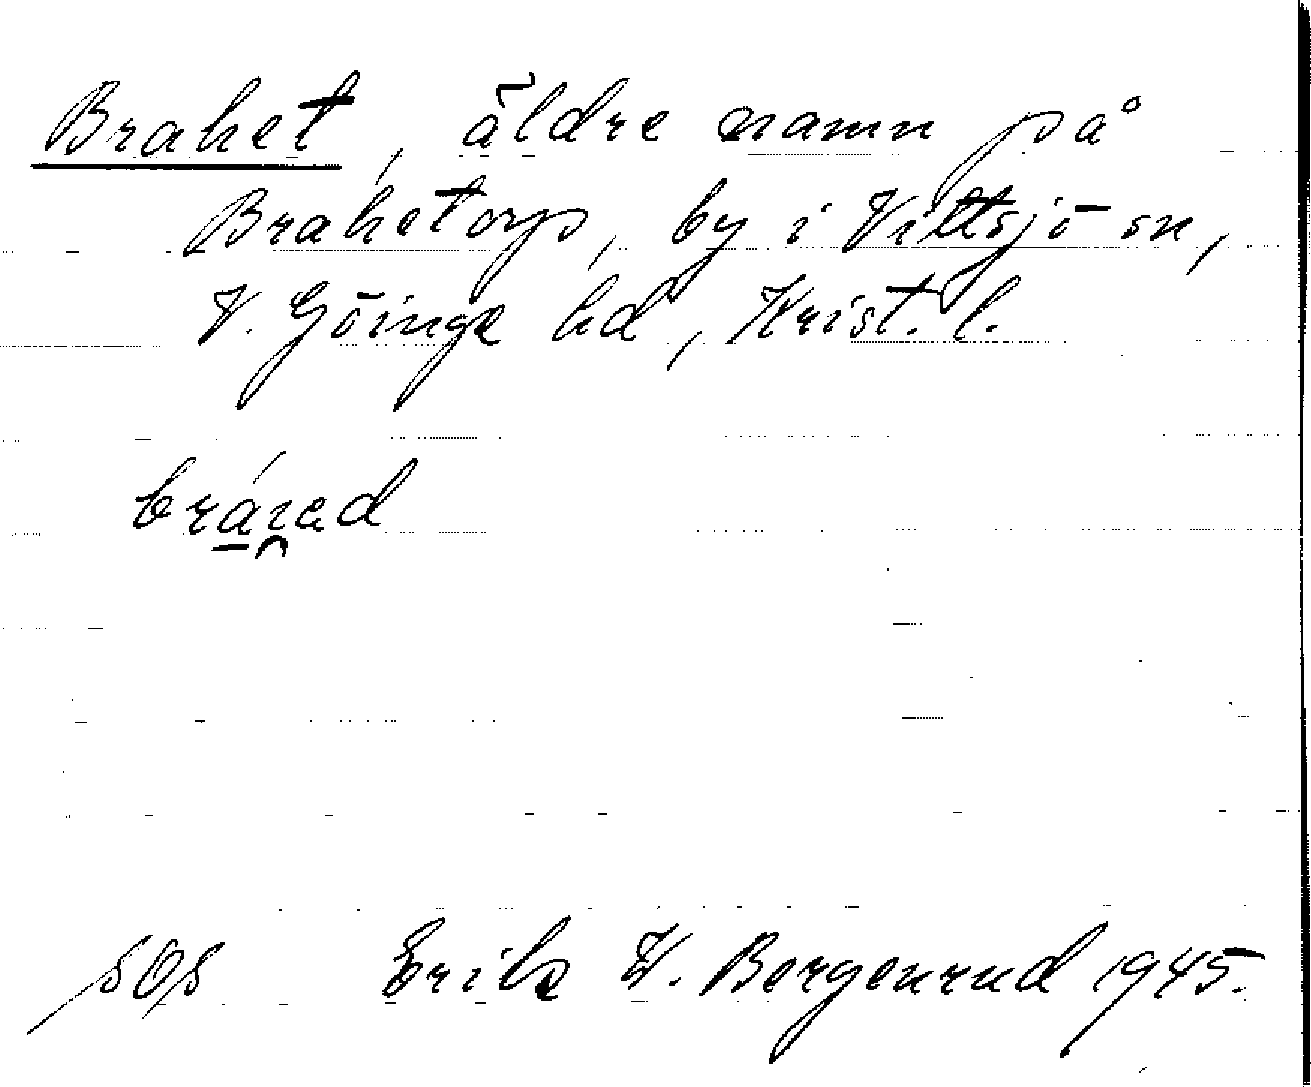 Brahet, äldre namn på
Brahetorp, by i Vittsjö sn,
V. Göinge hd, Krist. l.
bráıad
sOs Erik H. Borgenrud 1945.